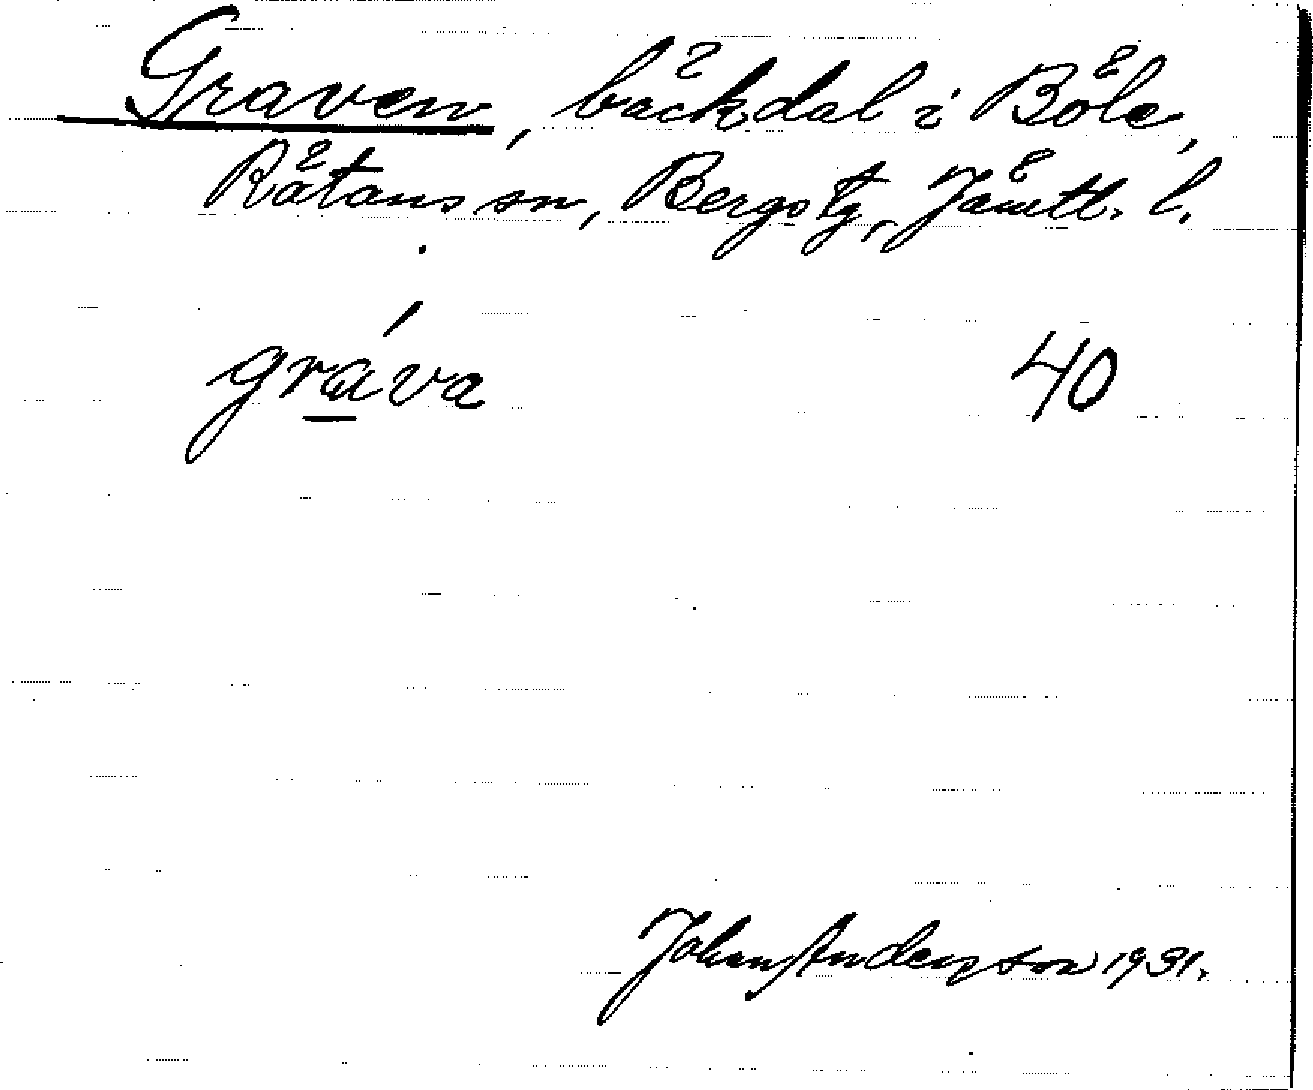 Graven, bäckdal i Böle,
Rätans sn, Bergs tg, Jämtl. l.
gráva 40
Johan Anderson 1931.